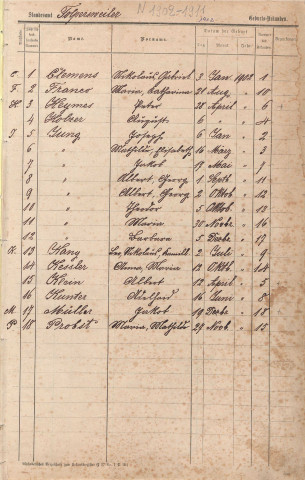 N 1902-1911
Standesamt Folpersweiler Geburts-Urkunden.
Name. Vorname. Datum der Geburt
C. 1 Clemens Nikolaus Gabriel 3 Jan 1902 1
F. 2 Franco Maria Katharina 21 Aug 10
H. 3 Heymes Peter 28 April 6
4 August 4
J. 5 Jung Joseph 6 Jan 2
6 " Mathilde Elisabeth 16 März 3
7 " Jakob 17 Mai 7
8 " Albert Georg 1 Septb 11
9 " Albert Georg 2 Oktob 12
10 " Theodor 5 Oktob 13
11 " Maria 30 Novbr 16
12 " Barbara 5 Dezbr 17
K. 13 Kang Leo Nikolaus Kamill 2 Juli 9
14 Kessler Anna Maria 12 Oktb 14
15 Klein Albert 12 April 5
16 Kunter 16 Juni 8
M. 17 Müller Jakob 19 Dezbr 18
P. 18 Probst Maria Mathilde 29 Novb 15